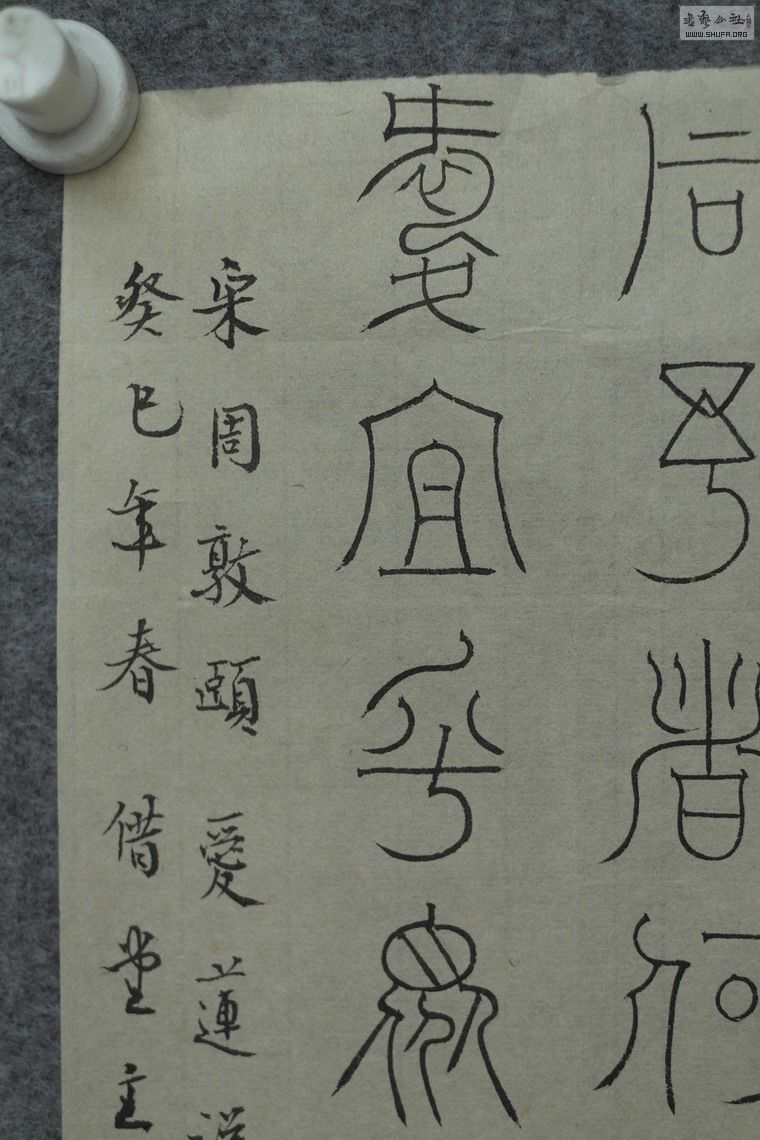 書藝公社
WWW.SHUFA.ORG
后予者何
愛宜乎眾
宋周敦頤 愛蓮說
癸巳年春 借堂主